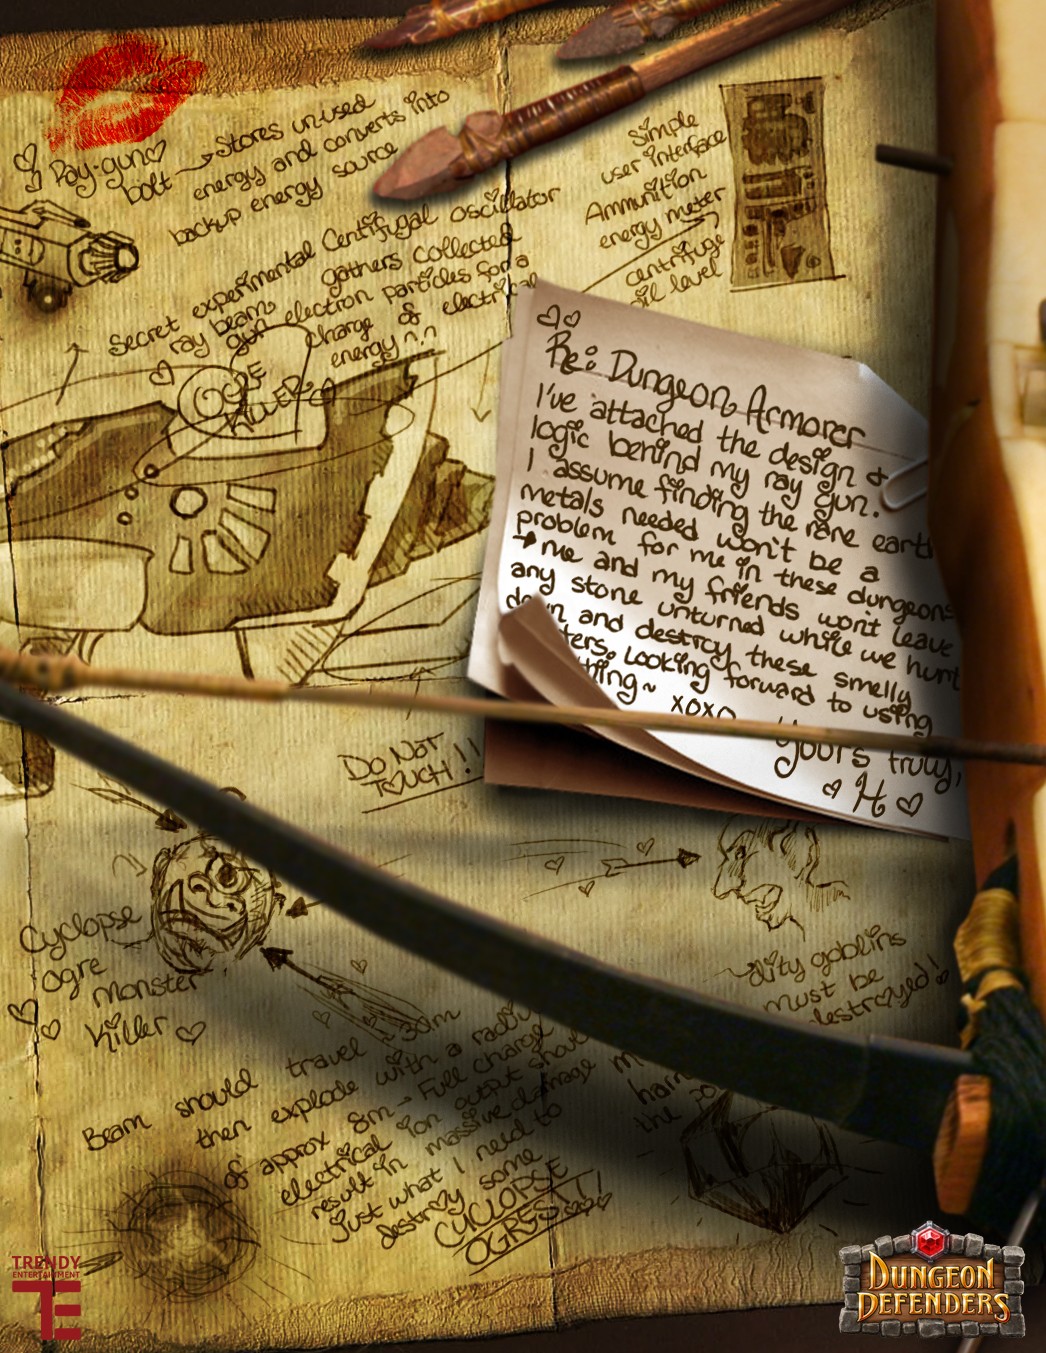 Ray-gun
bolt
Stores unused
energy and converts into
backup energy source
Simple
user interface
Ammunition
energy meter
centrifuge
oil level
Secret experimental Centifugal oscillator
ray beam gathers collected
gun electron particles for a
charge of electrical
energy ^.^
OGRE
KILLER
Re: Dungeon Armorer
I've attached the design &
logic behind my ray gun.
I assume finding the rare earth
metals needed won't be a
problem for me in these dungeons
me and my friends won't leave
any stone unturned while we hunt
down and destroy these smelly
Looking forward to using
thing~ xoxo
Yours truly,
H
DO NOT
TOUCH!!
Cyclopse
ogre
monster
Killer
dirty goblins
must be
destroyed!
Beam should travel ~30m
then explode with a radius
of approx 8m - Full charge
electrical ion output should
result in massive damage
Just what I need to
destroy some
CYCLOPSE
OGRES AT!
the
TRENDY
ENTERTAINMENT
TE
DUNGEON
DEFENDERS